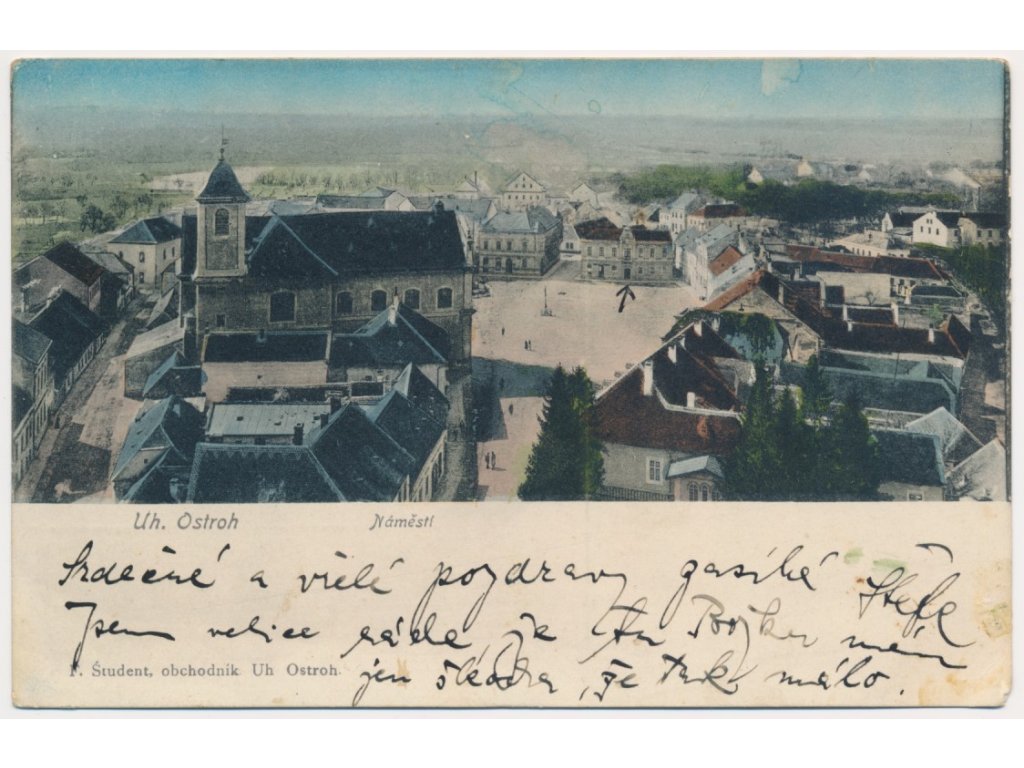 Uh. Ostroh Náměstí
Srdečné a vřelé pozdravy zasílá Štefa
Jsem velice ráda že tu Bojku mám
F. Študent, obchodník Uh Ostroh.
jen škoda, že tak málo.